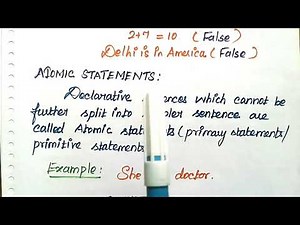 2+7 = 10 (False)
Delhi is in America (False)
ATOMIC STATEMENTS:
Declarative ences which cannot be
further split into pler sentence are
called Atomic stat ts (primary statements/
primitive statements
Example: She doctor.